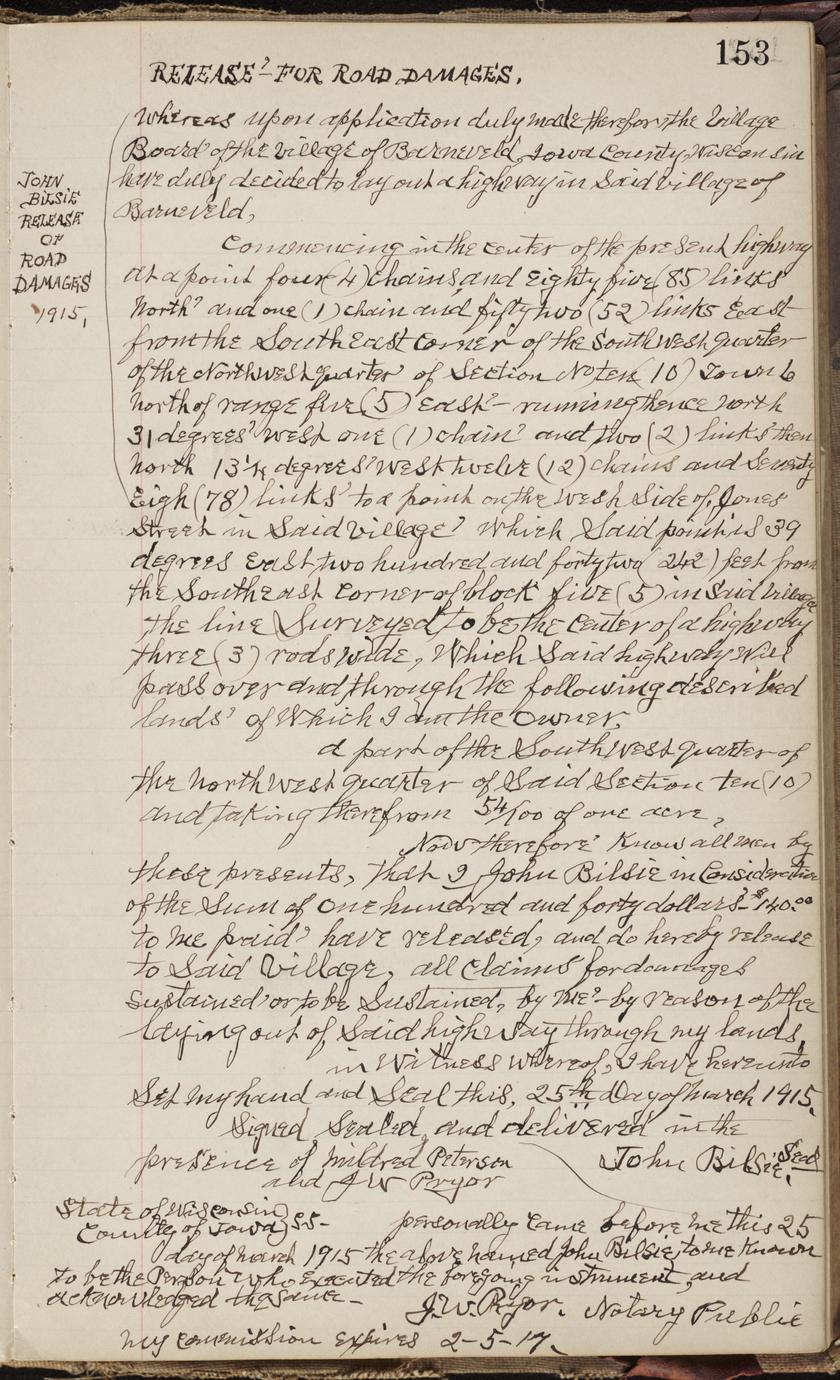 153
RELEASE - FOR ROAD DAMAGES.
JOHN
BILSIE
RELEASE
OF
ROAD
DAMAGES
1915,
Whereas upon application duly made therefor, the Village
Board of the Village of Barneveld, Iowa County, Wisconsin
have duly decided to lay out a highway in Said Village of
Barneveld,
Commencing in the center of the present highway
at a point four (4) chains, and Eighty five (85) links
North and one (1) chain and fifty two (52) links East
from the South East Corner of the South West quarter
of the North West quarter of Section No ten (10) Town 6
North of range five (5) East - running thence north
31 degrees West one (1) chain and two (2) links then
North 13 1/4 degrees West twelve (12) chains and Seventy
Eigh (78) links to a point on the West Side of, Jones
Street in Said Village Which Said point is 39
degrees East two hundred and forty two (242) feet from
the Southeast Corner of block five (5) in Said Village
the line Surveyed to be the Center of a highway
three (3) rods Wide, Which Said highway Will
pass over and through the following described
lands of Which I am the Owner,
a part of the South West quarter of
the North West quarter of Said Section ten (10)
and taking therefrom 54/100 of one acre,
Now therefore Know all men by
these presents, that I John Bilsie in Consideration
of the Sum of One hundred and forty dollars - $140.00
to me paid have released, and do hereby release
to Said Village, all Claims for damages
Sustained or to be Sustained, by Me - by reason of the
laying out of Said highway through my lands,
in Witness Whereof, I have hereunto
Set my hand and Seal this, 25th Day of March 1915,
Signed, Sealed, and delivered in the
presence of Mildred Peterson
and J W Pryor
John Bilsie, Seal
State of Wisconsin)
County of Iowa) SS - personally Came before me this 25
day of March 1915 the above named John Bilsie, to me Known
to be the Person Who Executed the foregoing instrument, and
acknowledged the Same -
J.W. Pryor, Notary Public
My Commission Expires 2-5-17,